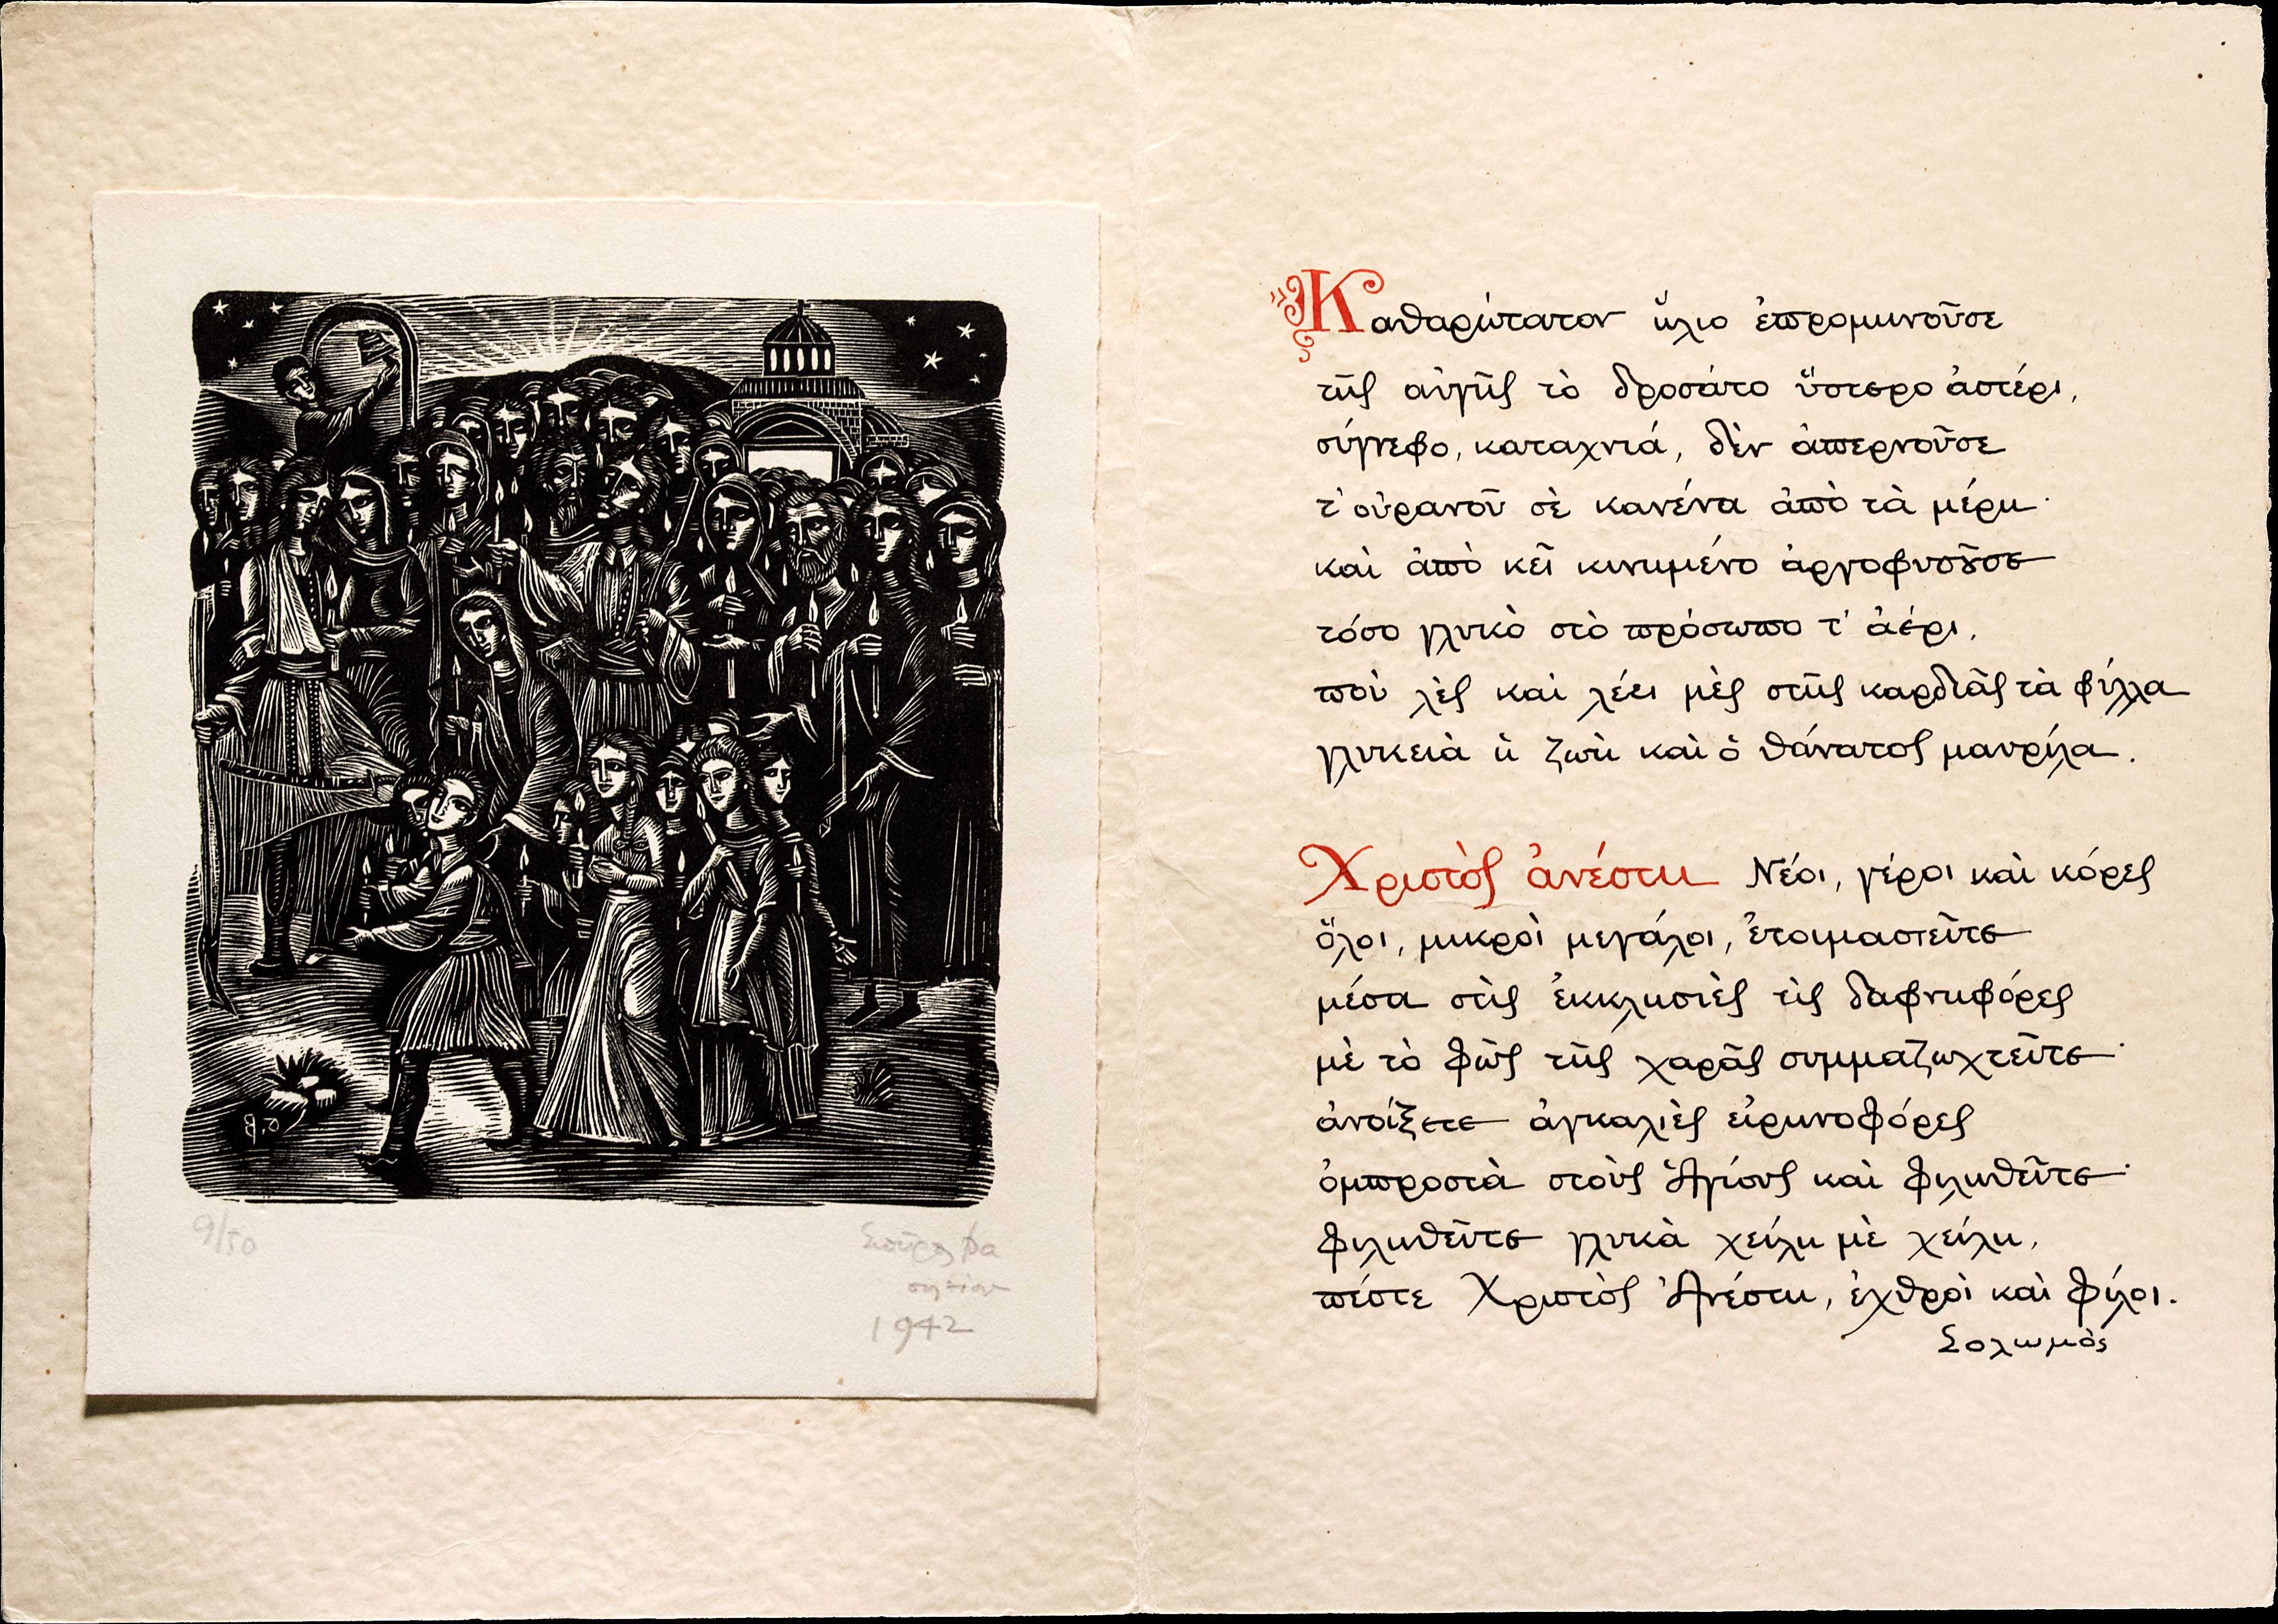 9/50
1942
Καθαρώτατον ἥλιο ἐπρομηνοῦσε
τῆς αὐγῆς τὸ δροσάτο ὕστερο ἀστέρι,
σύγνεφο, καταχνιά, δὲν ἀπερνοῦσε
τ' οὐρανοῦ σὲ κανένα ἀπὸ τὰ μέρη·
καὶ ἀπὸ κεῖ κινημένο ἀργοφυσοῦσε
τόσο γλυκὸ στὸ πρόσωπο τ' ἀέρι,
ποὺ λὲς καὶ λέει μὲς στῆς καρδιᾶς τὰ φύλλα
γλυκειὰ ἡ ζωὴ καὶ ὁ θάνατος μαυρίλα.
Χριστὸς ἀνέστη Νέοι, γέροι καὶ κόρες
ὅλοι, μικροὶ μεγάλοι, ἑτοιμαστεῖτε
μέσα στὶς ἐκκλησιὲς τὶς δαφνηφόρες
μὲ τὸ φῶς τῆς χαρᾶς συμμαζωχτεῖτε·
ἀνοίξετε ἀγκαλιὲς εἰρηνοφόρες
ὀμπροστὰ στοὺς Ἁγίους καὶ φιληθεῖτε·
φιληθεῖτε γλυκὰ χείλη μὲ χείλη,
πέστε Χριστὸς Ἀνέστη, ἐχθροὶ καὶ φίλοι.
Σολωμὸς